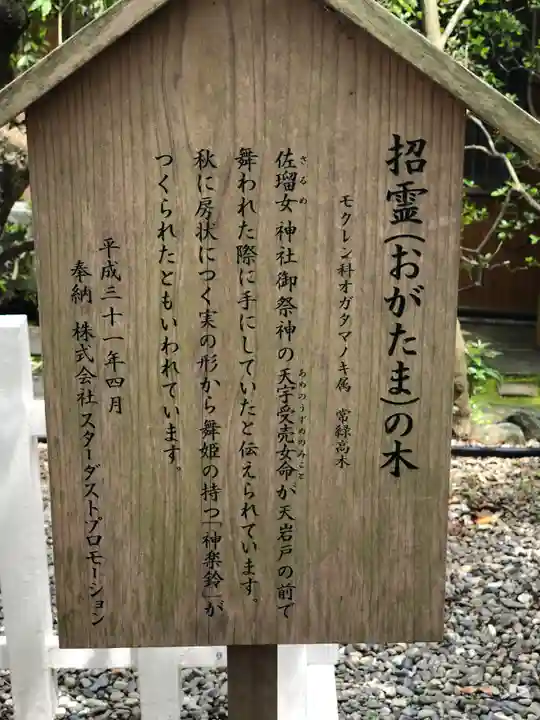 招霊(おがたま)の木
モクレン科オガタマノキ属 常緑高木
佐瑠女神社御祭神の天宇受売女命が天岩戸の前で
さるめ
あめのうずめのみこと
舞われた際に手にしていたと伝えられています。
秋に房状につく実の形から舞姫の持つ「神楽鈴」が
つくられたともいわれています。
平成三十一年四月
奉納 株式会社スターダストプロモーション